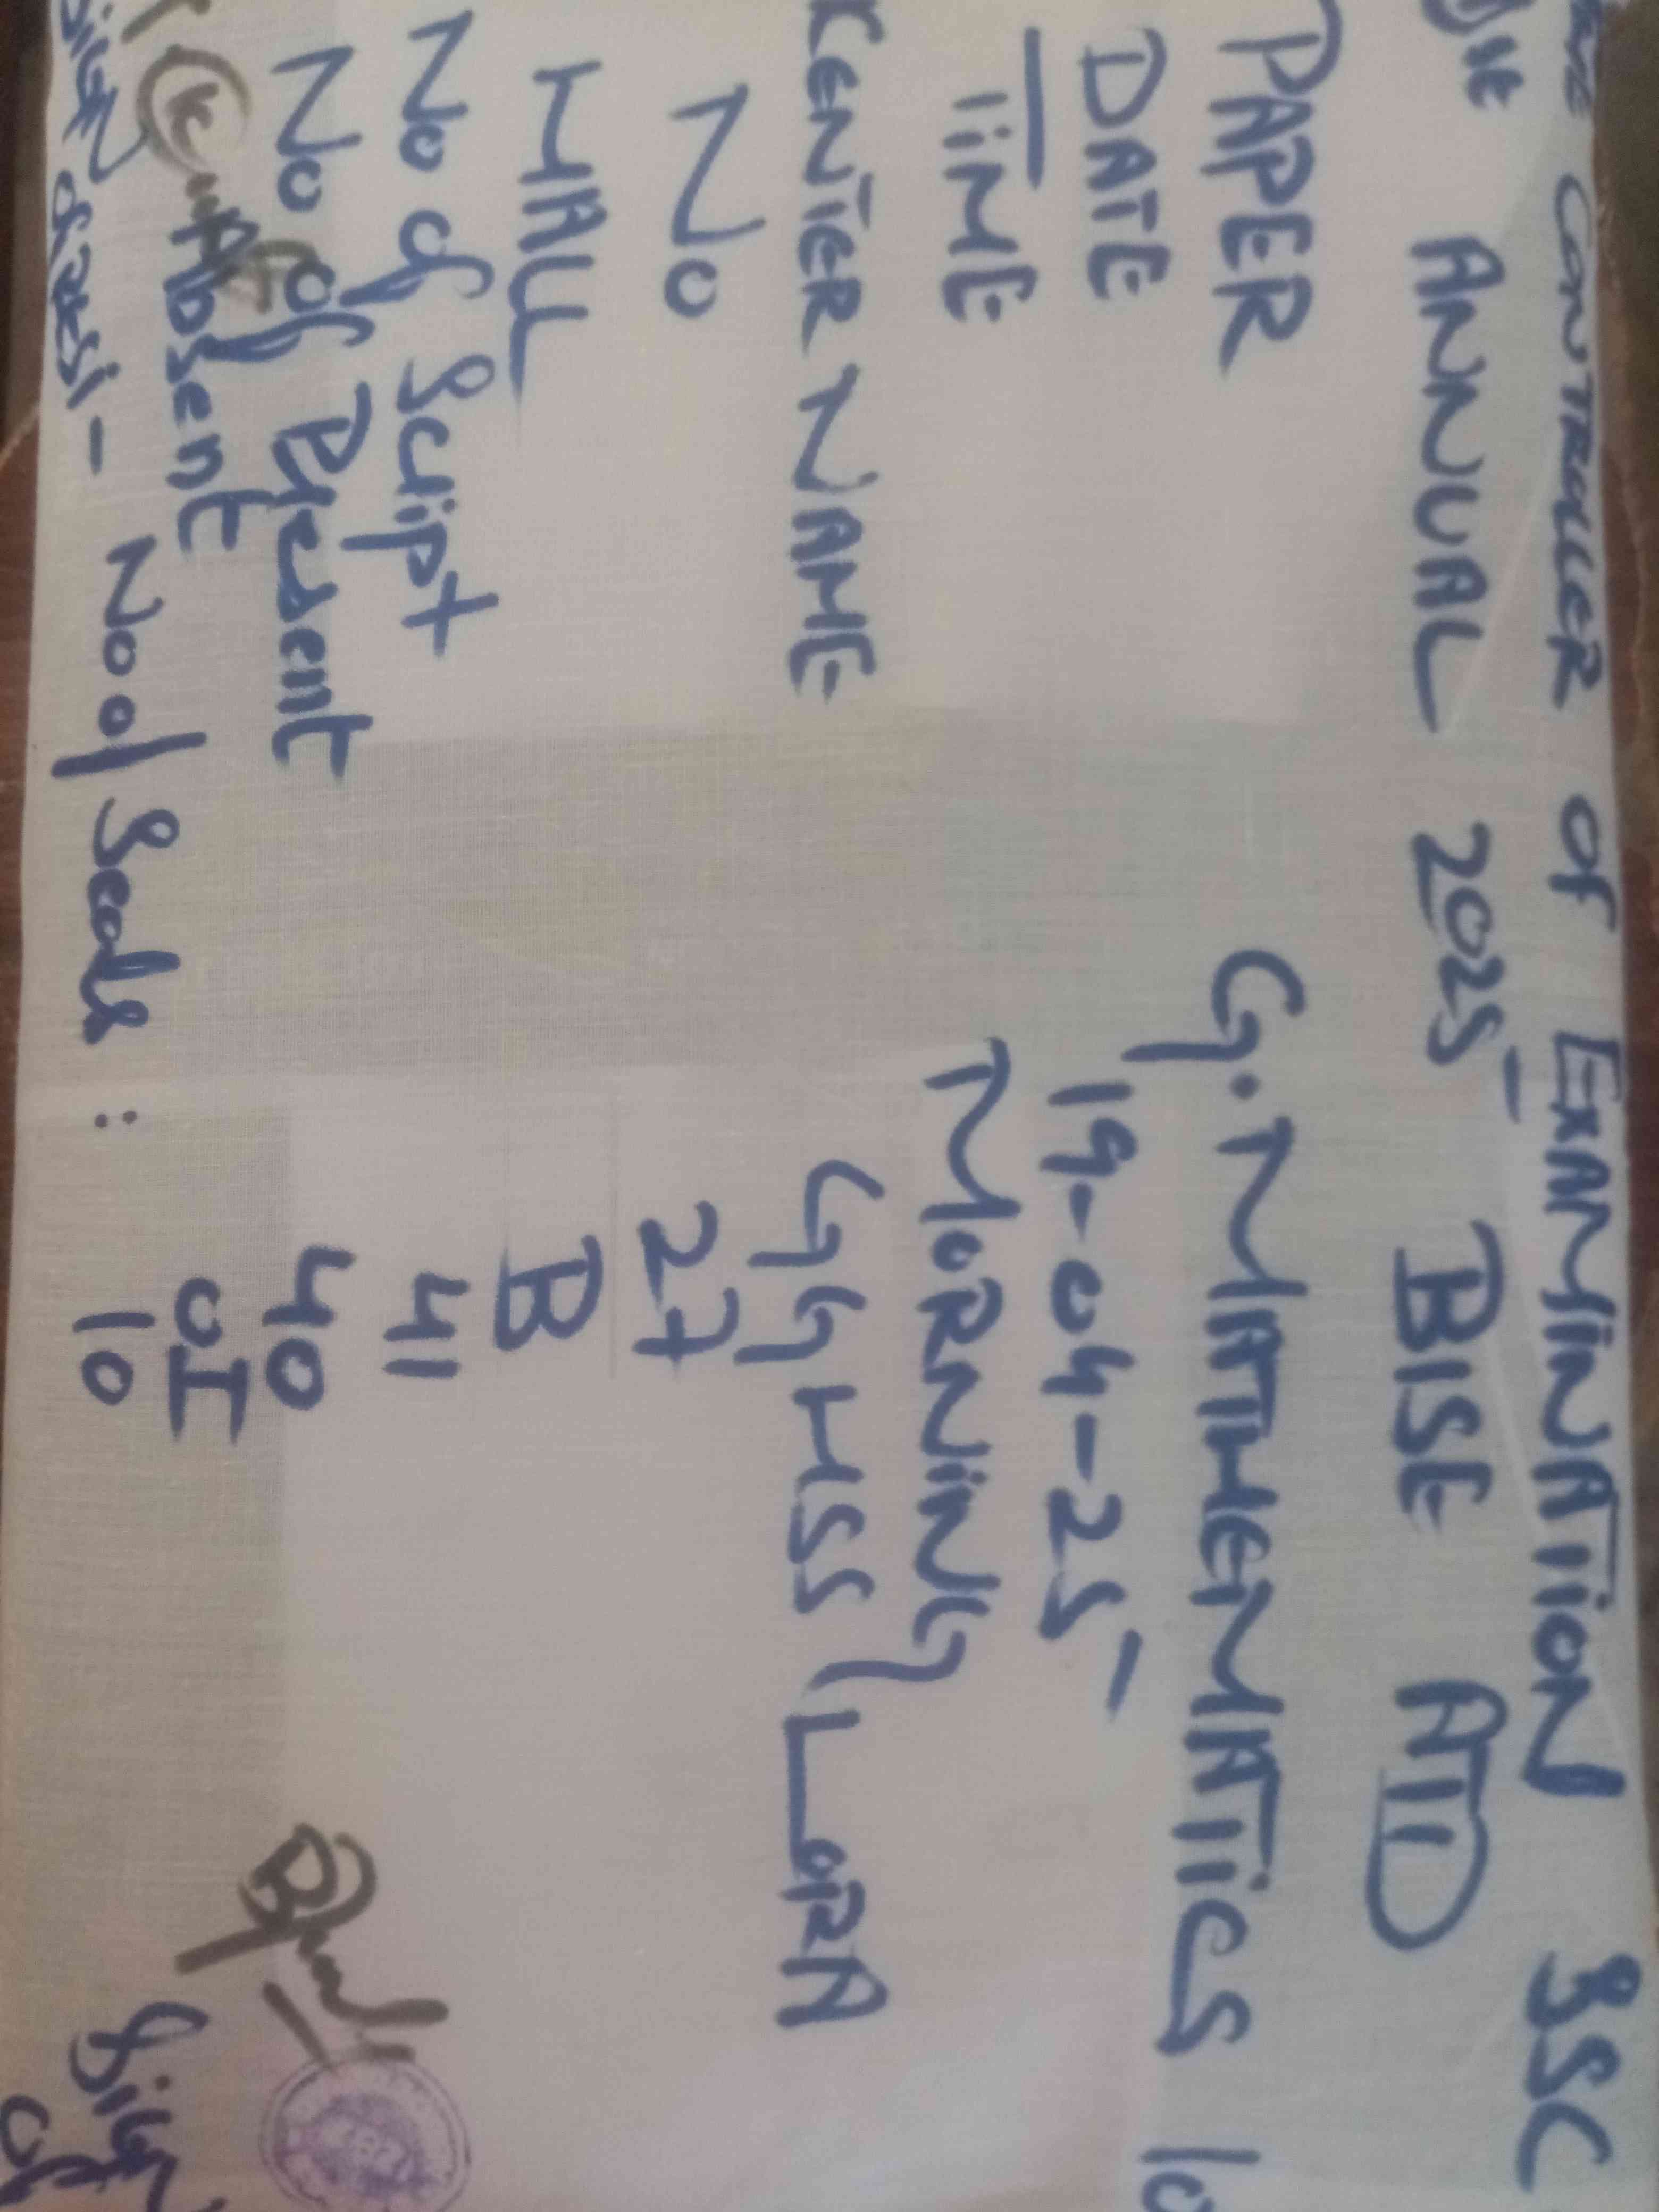 CONTROLLER OF EXAMINATION SSC
ANNUAL 2025 BISE ATD
PAPER G. MATHEMATICS 10
DATE 19-04-25
TIME MORNING
CENTER NAME GGHSS LORA
No 27
HALL B
No of Script 41
No of Present 40
Absent 01
No of Seals : 10
Sign